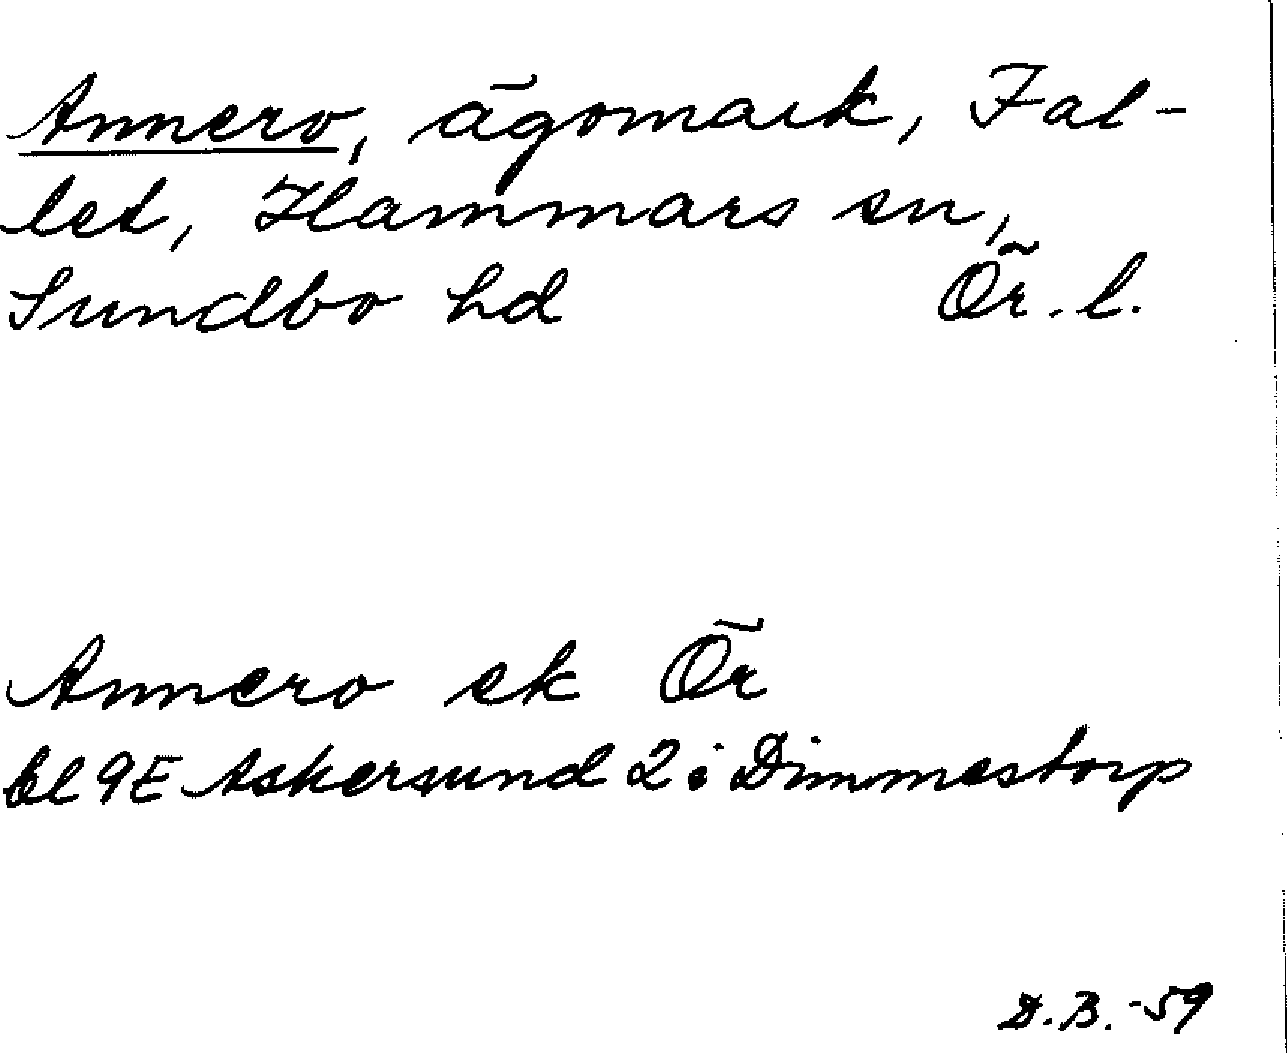 Annero, ägomark, Fal-
let, Hammars sn,
Sundbo hd Ör. l.
Annero ek Ör
bl 9E Askersund 2 i Dimmestorp
D.B. -59